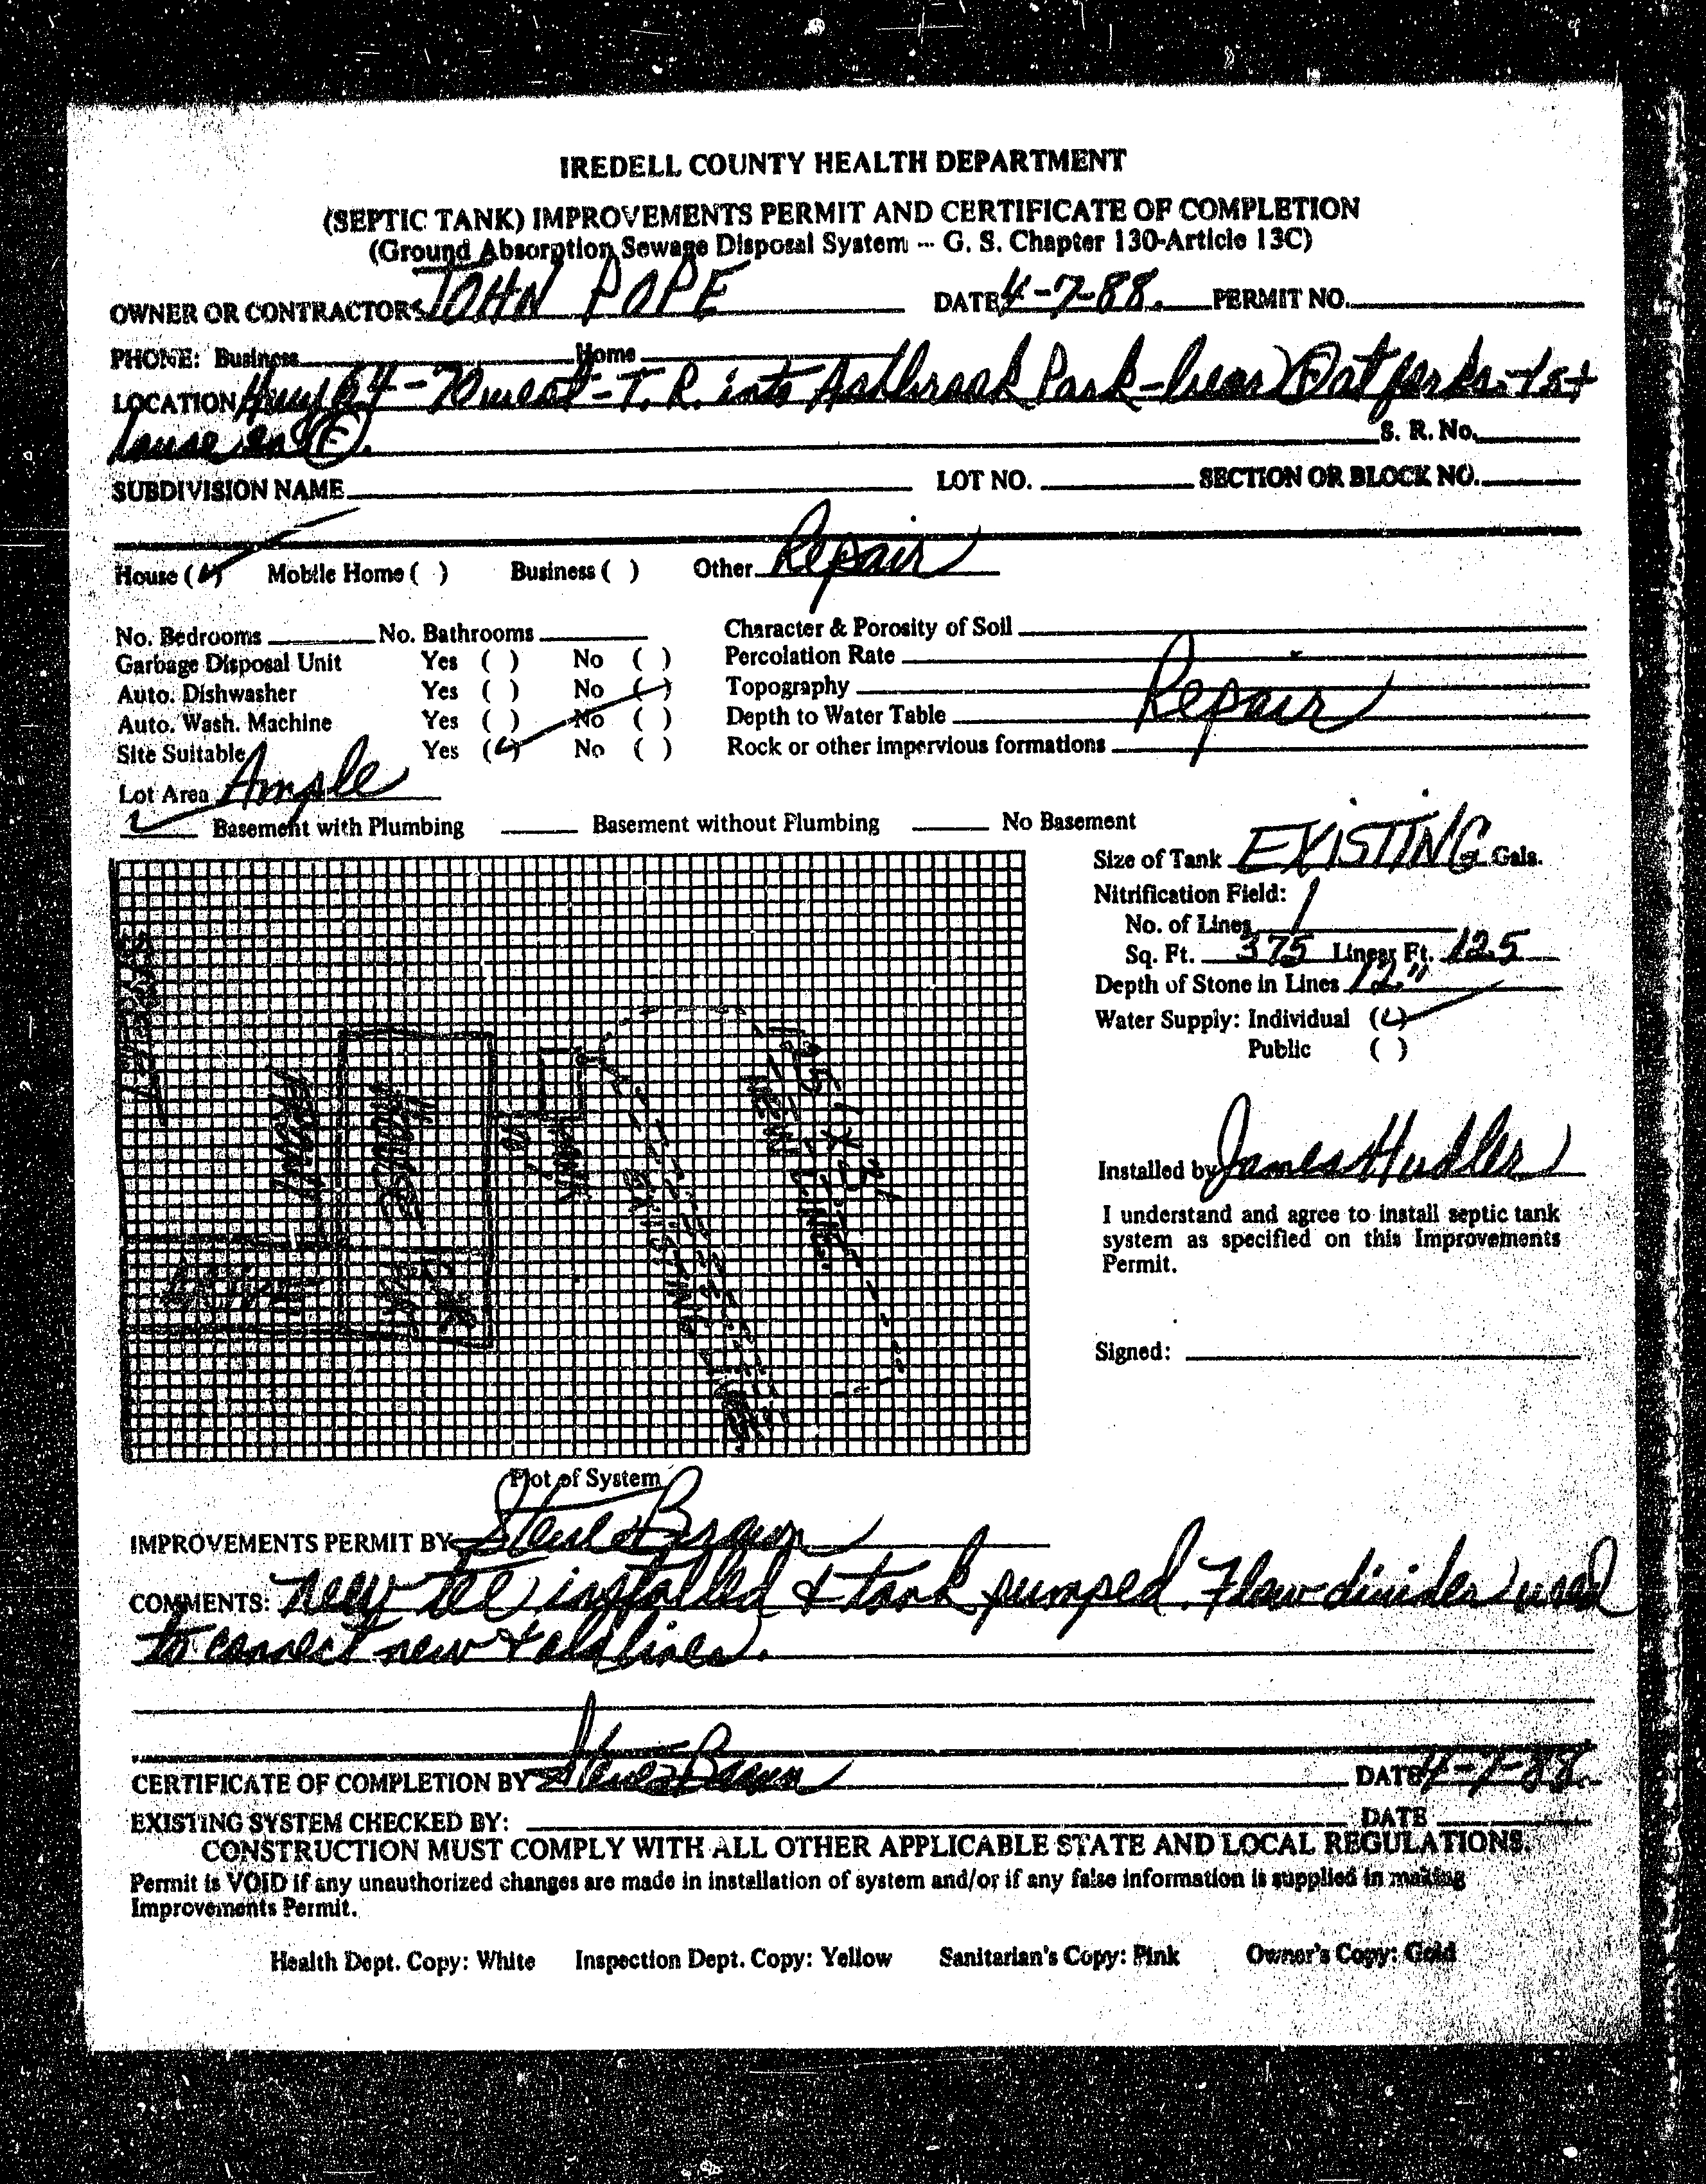 IREDELL COUNTY HEALTH DEPARTMENT
(SEPTIC TANK) IMPROVEMENTS PERMIT AND CERTIFICATE OF COMPLETION
(Ground Absorption Sewage Disposal System -- G. S. Chapter 130-Article 13C)
OWNER OR CONTRACTORS JOHN POPE DATE 4-7-88. PERMIT NO.
PHONE: Business Home
LOCATION Hwy 64-70 west - T. R. into Park - bear R at forks. 1st
house on
S. R. No.
SUBDIVISION NAME LOT NO. SECTION OR BLOCK NO.
House (✓) Mobile Home ( ) Business ( ) Other Repair
No. Bedrooms No. Bathrooms Character & Porosity of Soil
Garbage Disposal Unit Yes ( ) No ( ) Percolation Rate
Auto. Dishwasher Yes ( ) No ( ) Topography Repair
Auto. Wash. Machine Yes ( ) No ( ) Depth to Water Table
Site Suitable Yes (✓) No ( ) Rock or other impervious formations
Lot Area Ample
✓ Basement with Plumbing Basement without Plumbing No Basement
Size of Tank EXISTING Gals.
Nitrification Field:
No. of Lines 1
Sq. Ft. 375 Linear Ft. 125
Depth of Stone in Lines 12"
Water Supply: Individual (✓)
Public ( )
FRONT
HOUSE
TANK
EXISTING
Installed by James Hudler
I understand and agree to install septic tank
system as specified on this Improvements
Permit.
Signed:
Plot of System
IMPROVEMENTS PERMIT BY Steve Brown
COMMENTS: New tee installed & tank pumped. Flow divider used
to connect new & old lines.
CERTIFICATE OF COMPLETION BY Steve Brown DATE 4-7-88.
EXISTING SYSTEM CHECKED BY: DATE
CONSTRUCTION MUST COMPLY WITH ALL OTHER APPLICABLE STATE AND LOCAL REGULATIONS.
Permit is VOID if any unauthorized changes are made in installation of system and/or if any false information is supplied in making
Improvements Permit.
Health Dept. Copy: White Inspection Dept. Copy: Yellow Sanitarian's Copy: Pink Owner's Copy: Gold